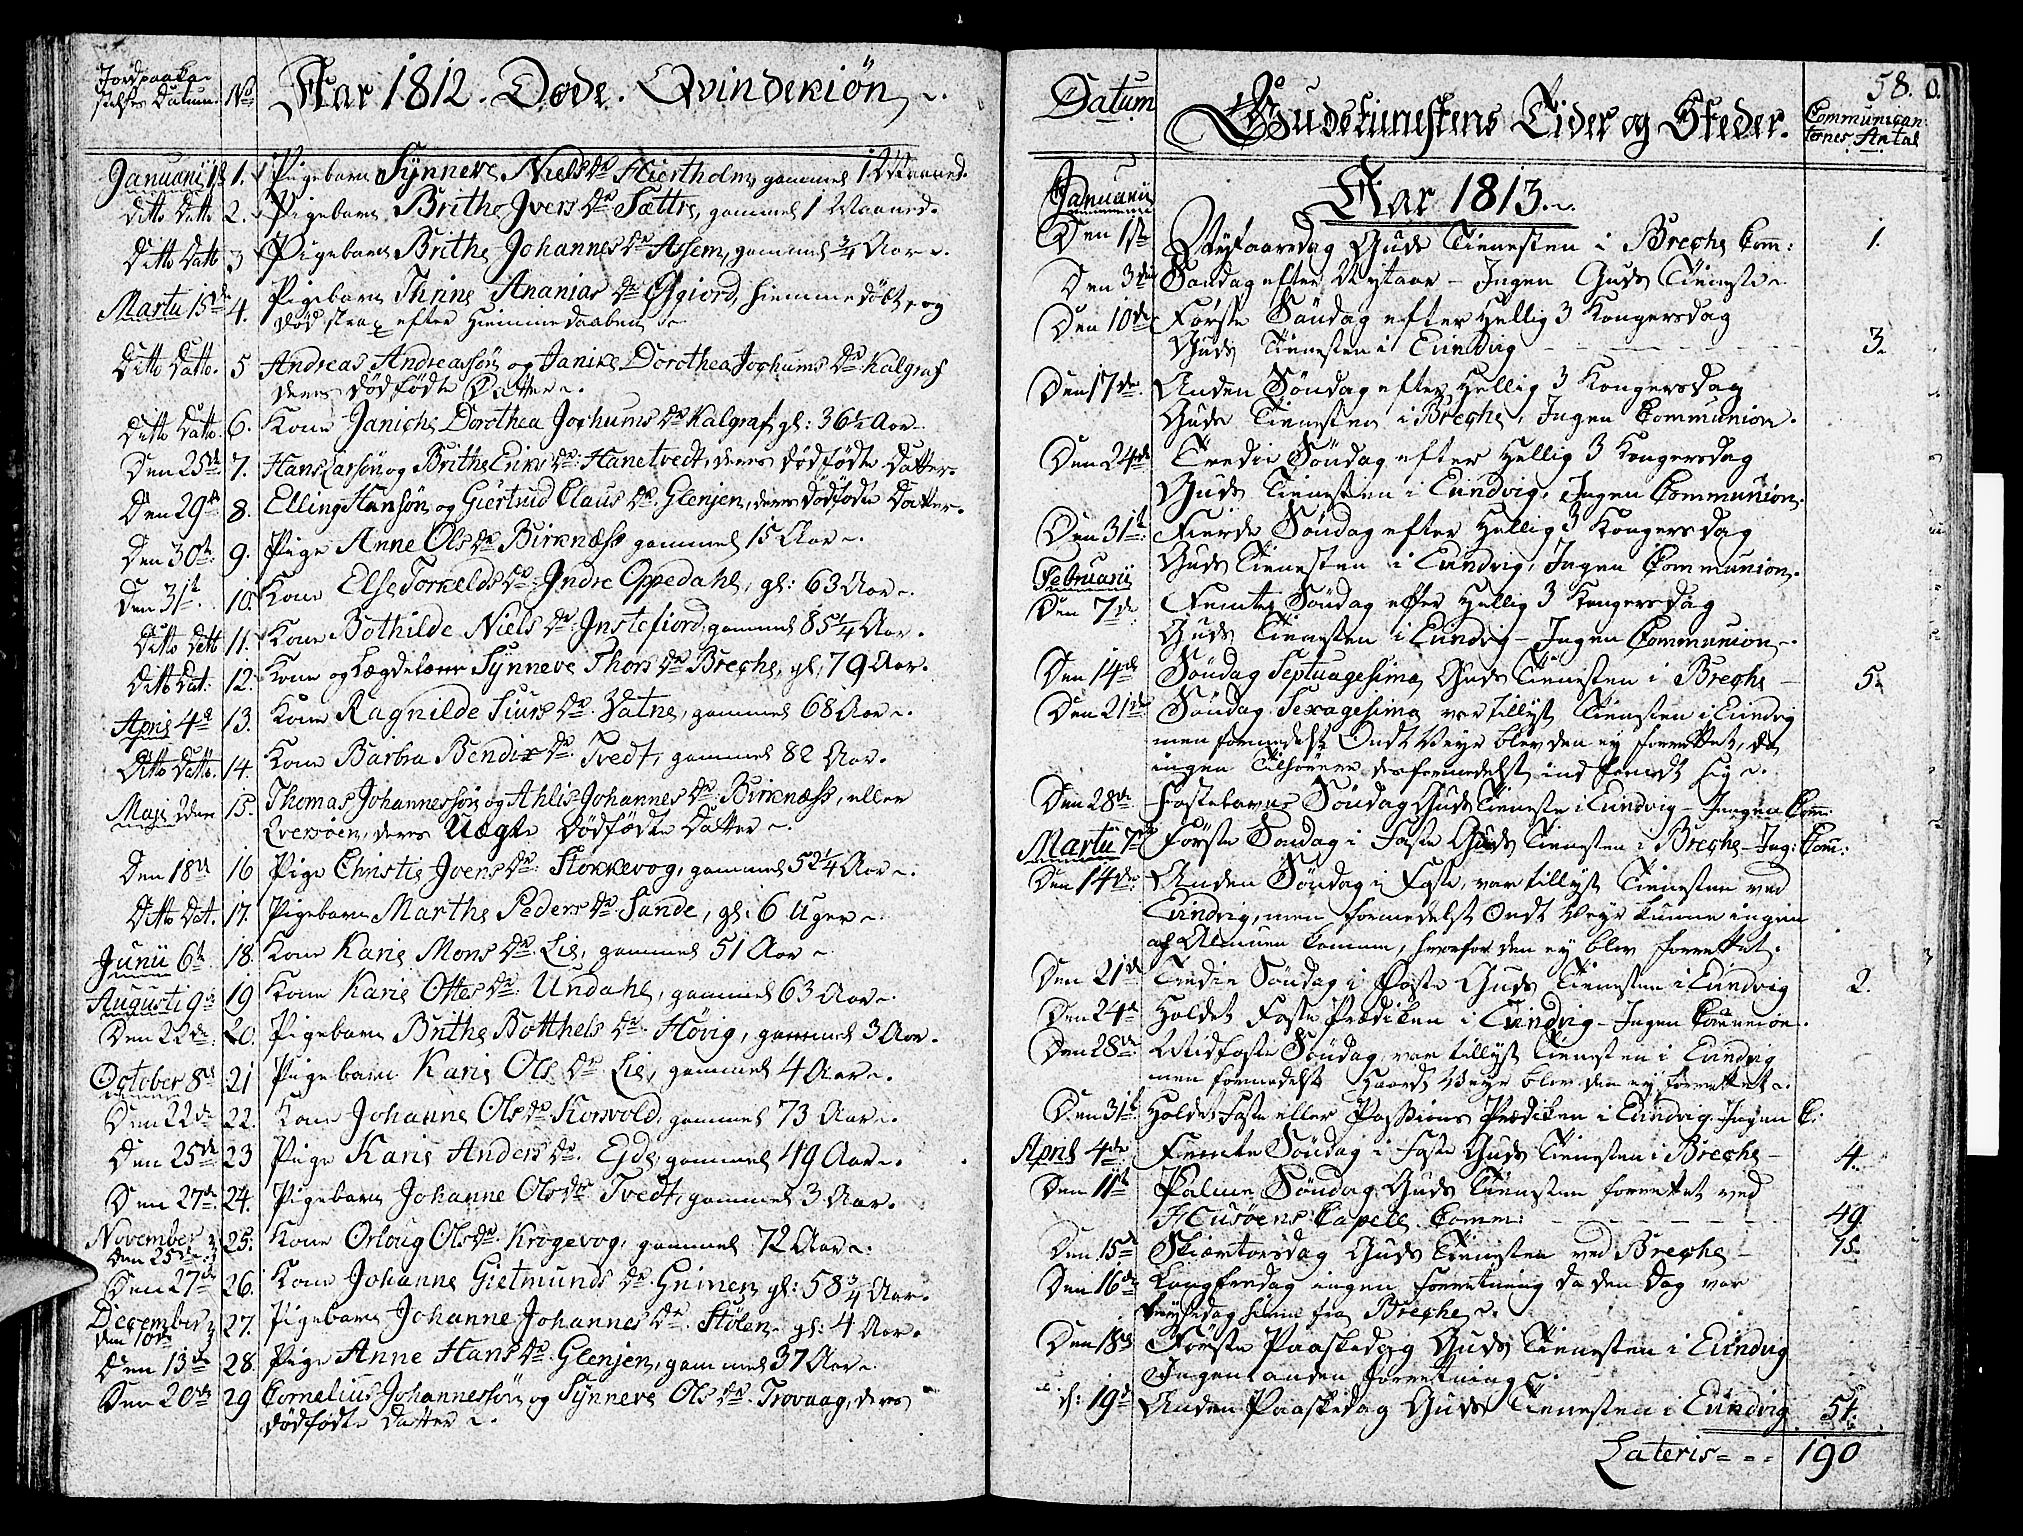 Jordpaaka-
stelses Datum. No Aar 1812. Døde. Qvindekiøn
Januarii 1st 1. Pigebarn Synneve Niels Dr Hiertholm gammel 1 Maaned.
Ditto Datto 2. Pigebarn Brithe Ivers Dr Sættre, gammel 1 Maaned.
Ditto Datto 3 Pigebarn Brithe Johannes Dr Assem, gammel 3/4 Aar.
Martii 15de 4. Pigebarn Thrine Ananias Dr Øsgiord, hiemmedøbt, og
død strax efter Hiemmedaaben.
Ditto Datto. 5 Andreas Andreassøn og Janike Dorothea Jochums Dr Kalgraf
deres dødfødte Datter.
Ditto Datto. 6. Kone Janiche Dorothea Jochums Dr Kalgraf, gl: 36½ Aar.
Den 25de 7. Hans Larsøn og Brithe Eriks Dr Hanetvedt, deres dødfødte Datter.
Den 29de 8. Elling Hansøn og Giertrud Claus Dr. Glenjen, deres dødfødte Datter.
Den 30te 9. Pige Anne Ols Dr Birknæss gammel 15 Aar.
Den 31te 10. Kone Else Torkelds Dr. Indre Oppedahl, gl: 63 Aar.
Ditto Datto 11. Kone Bothilde Niels Dr. Instefiord, gammel 85¼ Aar.
Ditto Dat: 12. Kone og Lægdelem Synneve Thors Dr Breche, gl: 79 Aar.
April 4de 13. Kone Ragnilde Siurs Dr. Vatne, gammel 68 Aar.
Ditto Datto. 14. Kone Barbra Bendix Dr. Tvedt, gammel 82 Aar.
Maji 2den 15. Thomas Johannessøn og Ahlis Johannes Dr. Birknæss, eller
Qversøen, deres Uægte dødfødte Datter.
Den 18de 16 Pige Christie Ivers Dr. Stokkevog, gammel 52¼ Aar.
Ditto Dat. 17. Pigebarn Marthe Peders Dr Sande, gl: 6 Uger.
Junii 6te 18. Kone Karie Mons Dr. Lie, gammel 51 Aar
Augusti 9de 19 Kone Karie Ottes Dr. Undahl, gammel 63 Aar.
Den 22de 20. Pigebarn Brithe Botthels Dr. Høvig, gammel 3 Aar.
October 8de 21 Pigebarn Karie Ols Dr. Lie, gammel 4 Aar.
Den 22de 22. Kone Johanne Ols Dr Korsvold, gammel 73 Aar.
Den 25de 23 Pige Karie Anders Dr. Eide, gammel 49 Aar.
Den 27de 24. Pigebarn Johanne Ols Dr Tvedt, gammel 3 Aar.
November
Den 25de 25. Kone Orloug Ols Dr. Krogevog, gammel 72 Aar.
Den 27de 26. Kone Johanne Gietmunds Dr. Grinen, gl: 58¾ Aar.
December
den 10de 27. Pigebarn Johanne Johannes Dr. Stølen, gl: 4 Aar.
Den 13de 28. Pige Anne Hans Dr. Glenjen, gammel 37 Aar.
Den 20de 29 Cornelius Johannessøn og Synneve Ols Dr. Trovaag, deres
dødfødte Datter.
58.
Datum Gudstienestens Tider og Steder. Communican-
ternes Antal
Januarii Aar 1813.
Den 1ste Nytaarsdag Guds Tienesten i Breche Com: 1.
Den 3die Søndag efter Nytaar - Ingen Guds Tieneste.
Den 10de Første Søndag efter Hellig 3 Kongersdag
Guds Tienesten i Evindvig 3.
Den 17de. Anden Søndag efter Hellig 3 Kongersdag
Guds Tienesten i Breche, Ingen Communion.
Den 24de Tredie Søndag efter Hellig 3 Kongersdag
Guds Tienesten i Evindvig, Ingen Communion.
Den 31te Fierde Søndag efter Hellig 3 Kongersdag
Guds Tienesten i Evindvig, Ingen Communion.
Februarii
Den 7de Femte Søndag efter Hellig 3 Kongersdag
Guds Tienesten i Evindvig - Ingen Communion.
Den 14de Søndag Septuagesima, Guds Tienesten i Breche - 5.
Den 21de Søndag Sexagesima var tillyst Tienesten i Evindvig
men formedelst Ondt Veyr blev den ey forrettet, da
ingen Tilhørere desformedelst indfandt sig.
Den 28de Fastelavns Søndag Guds Tieneste i Evindvig - Ingen Com:
Martii 7de Første Søndag i Faste Guds Tienesten i Breche - Ing: Com:
Den 14de. Anden Søndag i Faste, var tillyst Tienesten ved
Evindvig, men formedelst Ondt Veyr kunne ingen
af Almuen komme, hvorfor den ey blev forrettet.
Den 21de Tredie Søndag i Faste Guds Tienesten i Evindvig 2.
Den 24de Holdet Faste Prædiken i Evindvig - Ingen Communion.
Den 28de. Midfaste Søndag, var tillyst Tienesten i Evindvig
men formedelst Haardt Veyr blev den ey forrettet.
Den 31te Holdet Faste eller Passions Prædiken i Evindvig Ingen C:
April 4de Femte Søndag i Faste Guds Tienesten i Breche - 4.
Den 11te Palme Søndag Guds Tienesten forrettet ved
Husøens Capell Comm: 49.
Den 15de Skiærtorsdag Guds Tienesten ved Breche - 75.
Den 16de Langfredag ingen Forretning da den Dag var
Reysedag hiem fra Breche.
Den 18de Første Paaskedag Guds Tienesten i Evindvig
Ingen anden Forretning.
d: 19de Anden Paaskedag Guds Tienesten i Evindvig 51.
Lateris 190